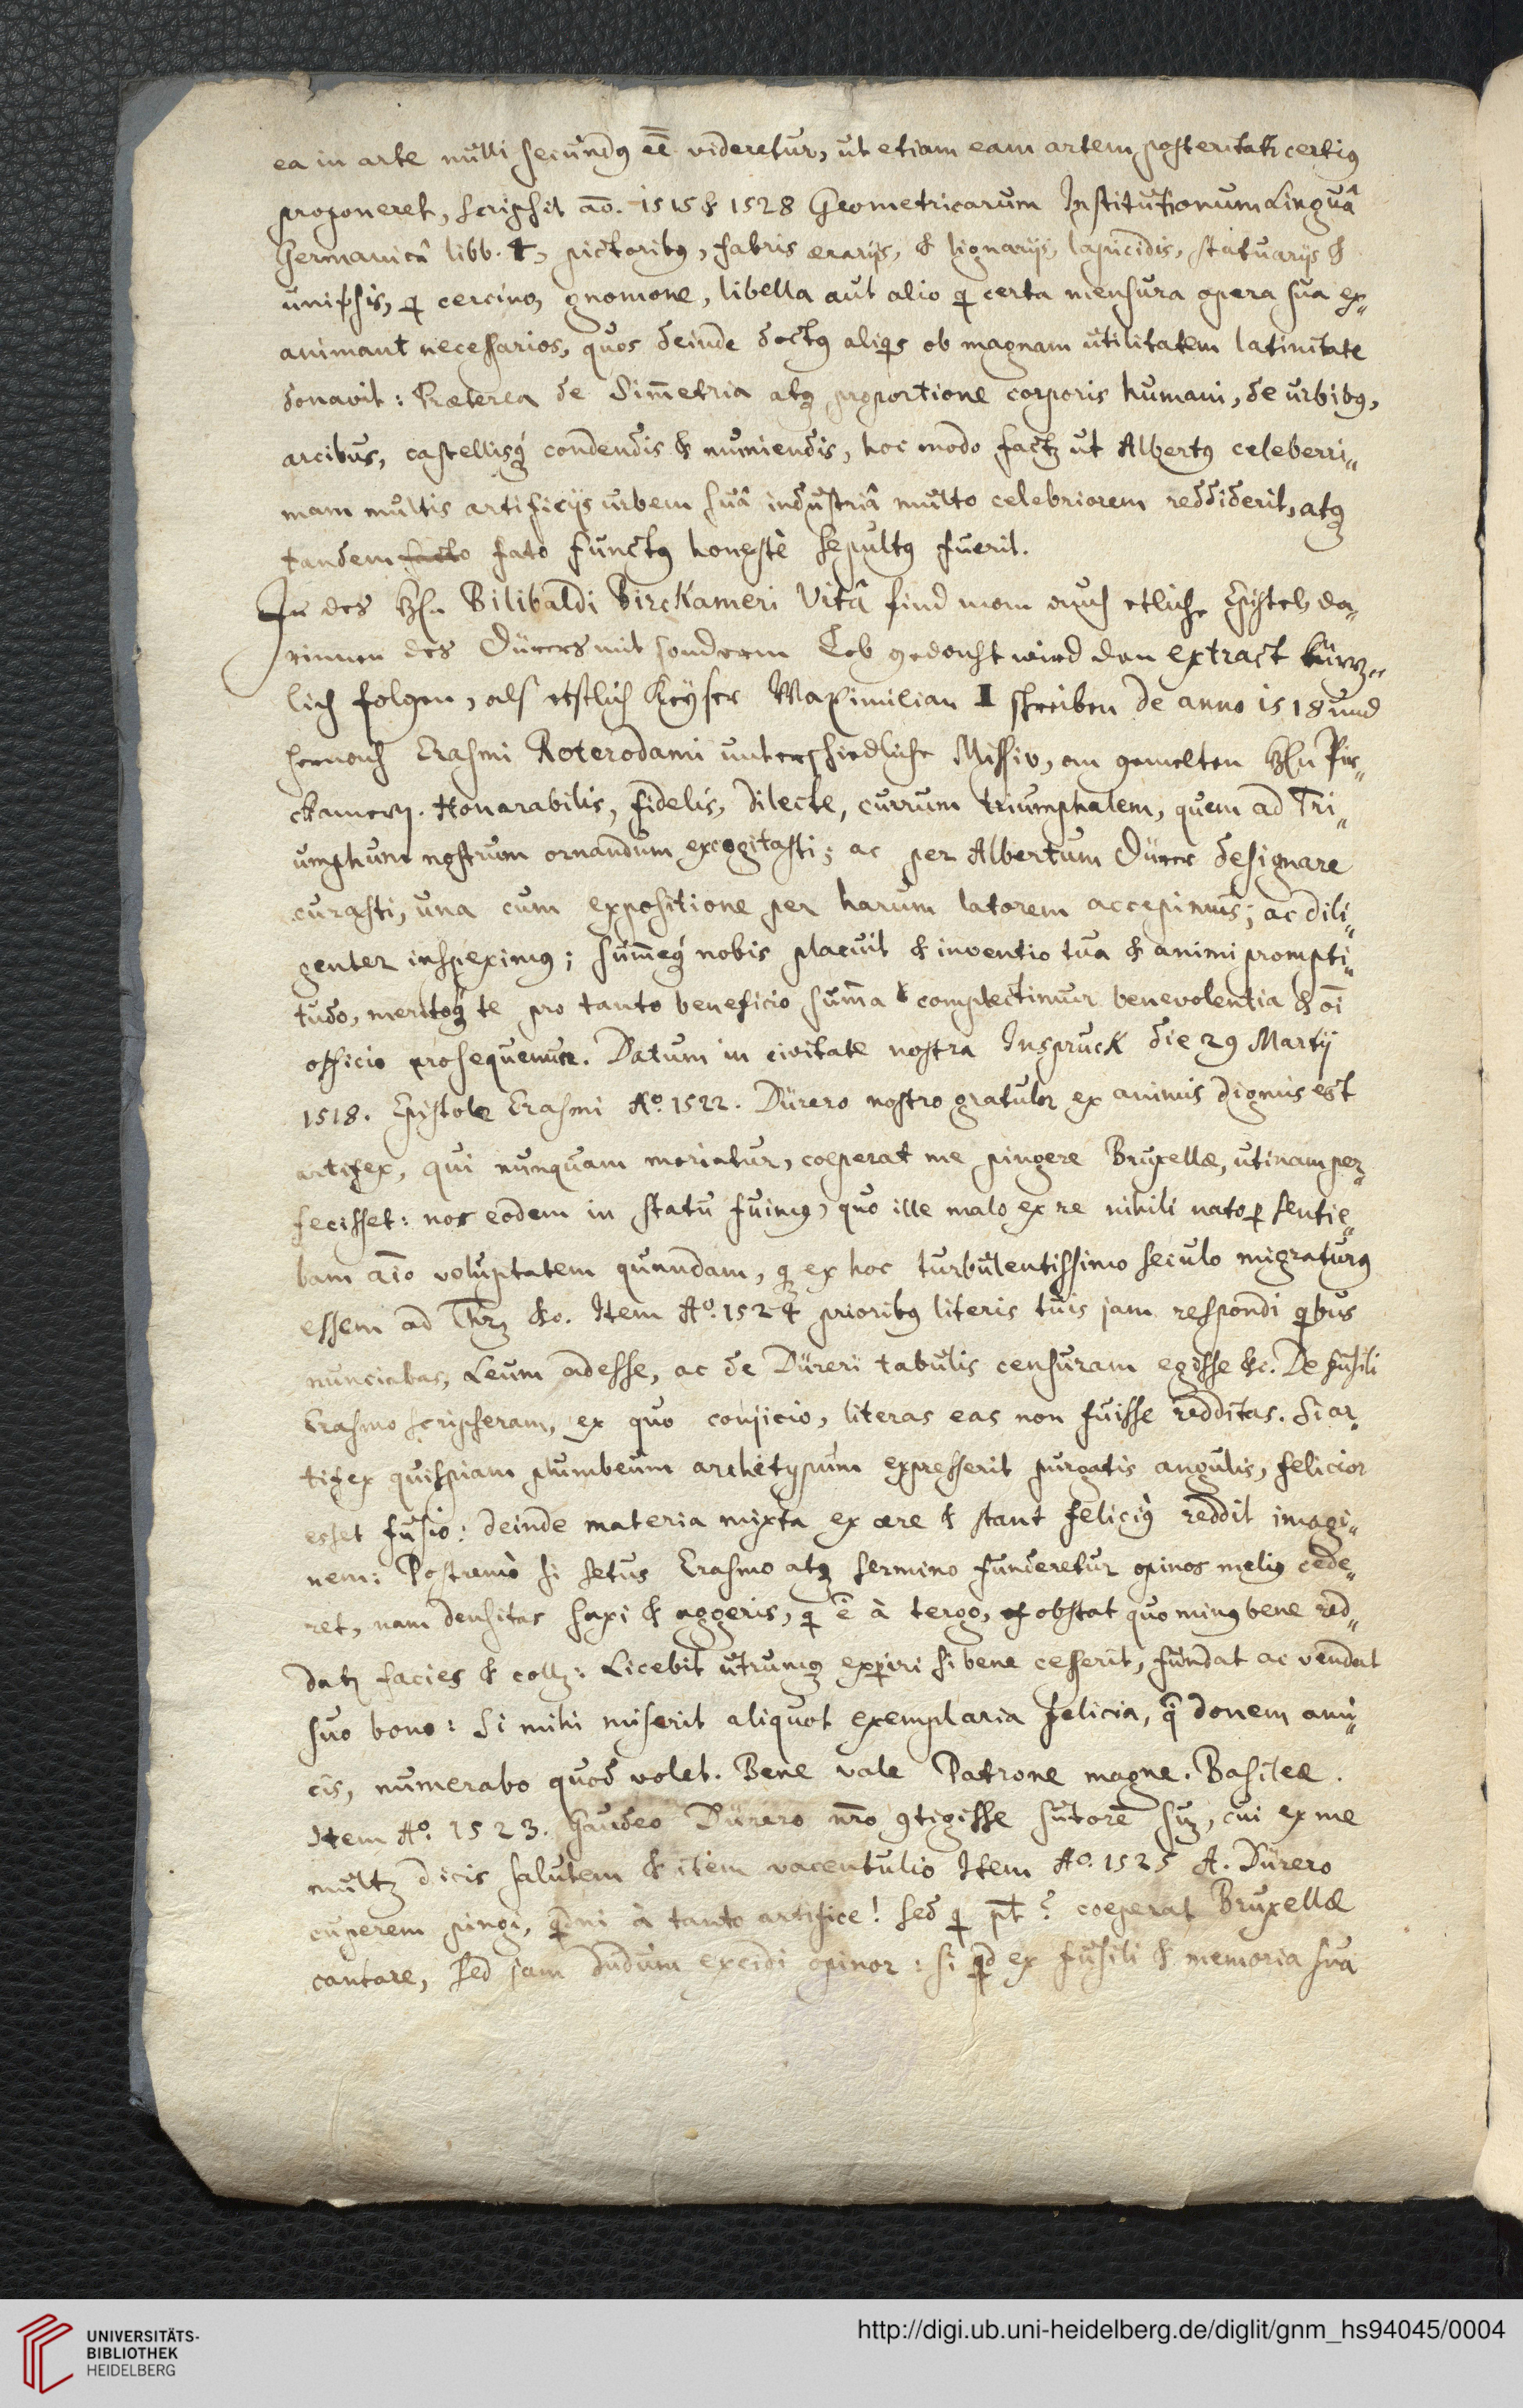 ea in arte nulli secundꝯ eē videretur, ut etiam eam artem posteritati certiꝯ
proponeret, scripsit ao. 1515 & 1528 Geometricarum Institutionum Linguâ
Germanicâ libb. 4, pictoribꝯ, fabris ærarijs, & lignarijs, lapicidis, statuarijs &
, q circino, gnomone, libella aut alio q certa mensura opera sua ex„
aminant necessarios, quos deinde doctꝯ aliqs ob magnam utilitatem latinitate
donavit: Præterea de Sim̄etria atqꝫ proportione corporis humani, de urbibꝯ,
arcibus, castellisqꝫ condendis & muniendis, hoc modo factꝫ ut Albertꝯ celeberri„
mam multis artificijs urbem suâ industriâ multo celebriorem reddiderit, atqꝫ
tandem facto fato functꝯ honestè sepultꝯ fuerit.
In des Hn Bilibaldi Birckameri Vitâ find man auch etliche Epistel, da„
rinnen des Dürers mit sonderm Lob gedacht wird den extract kürz„
lich folgen, als erstlich Keyser Maximilian I schreiben de anno 1518 und
hernach Erasmi Roterodami unterschiedliche Missiv, an gemelten Hn Pir„
ckamern. Honarabilis, fidelis, dilecte, currum triumphalem, quem ad Tri„
umphum nostrum ornandum excogitasti; ac per Albertum Dürer designare
curasti, una cum expositione per harum latorem accepimus; ac dili„
genter inspeximꝯ; sum̄eqꝫ nobis placuit & inventio tua & animi prompti„
tudo, meritoqꝫ te pro tanto beneficio sum̄a complectimur benevolentia & oī
officio prosequemur. Datum in civitate nostra Inspruck die 29 Martij
1518. Epistole Erasmi Aº. 1522. Dürero nostro gratulor ex animis dignus est
artifex, qui nunquam moriatur, coeperat me pingere Bruxellæ, utinam per„
fecisset: nos eodem in statu fuimꝯ, quo ille malo ex re nihili nato sentie„
bam aīo voluptatem quandam, qꝫ ex hoc turbulentissimo seculo migraturꝯ
essem ad &c. Item Aº. 1524 prioribꝯ literis tuis jam respondi qbus
nunciabas, Leum adesse, ac de Düreri tabulis censuram egisse &c. De fusili
Erasmo scripseram, ex quo conjicio, literas eas non fuisse redditas. Si ar„
tifex quispiam plumbeum archetypum expresserit purgatis angulis, felicior
esset fusio: deinde materia mixta ex ære & stant feliciꝯ reddit imagi„
nem: Postremò si setus Erasmo atqꝫ Termino funderetur opinor meliꝯ cede„
ret, nam densitas saxi & aggeris, q ē à tergo, obstat quo minꝯ bene red„
datꝫ facies & collꝫ: Licebit utrumqꝫ experiri si bene cesserit, fundat ac vendat
suo bono: Si mihi miserit aliquot exemplaria felicia, q̄ donem ami„
cis, numerabo quod volet. Bene vale Patrone magne. Basileæ.
Item Aº. 1523. Gaudeo Dürero nr̄o ꝯtigisse sutorē suꝫ, cui ex me
multꝫ dicis salutem & item Item Aº. 1525 A. Dürero
cuperem pingi, qdni à tanto artifice! Sed q pt? coeperat Bruxellæ
cantare, sed jam dudum excidi opinor: si qd ex fusili & memoria sua
UNIVERSITÄTS-
BIBLIOTHEK
HEIDELBERG
http://digi.ub.uni-heidelberg.de/diglit/gnm_hs94045/0004